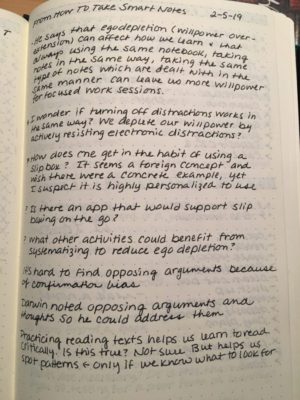 From How To Take Smart Notes 2-5-19
- He says that ego depletion (willpower over-
extension) can affect how we learn & that
always using the same notebook, taking
notes in the same way, taking the same
type of notes which are dealt with in the
same manner can leave us more willpower
for focused work sessions.
? I wonder if turning off distractions works in
the same way? We deplete our willpower by
actively resisting electronic distractions?
? How does one get in the habit of using a
slip box? It seems a foreign concept and
wish there were a concrete example, yet
I suspect it is highly personalized to use
? Is there an app that would support slip
boxing on the go?
? What other activities could benefit from
systematizing to reduce ego depletion?
It's hard to find opposing arguments because
of confirmation bias
Darwin noted opposing arguments and
thoughts so he could address them
Practicing reading texts helps us learn to read
critically. Is this true? Not sure But helps us
spot patterns ← only if we know what to look for